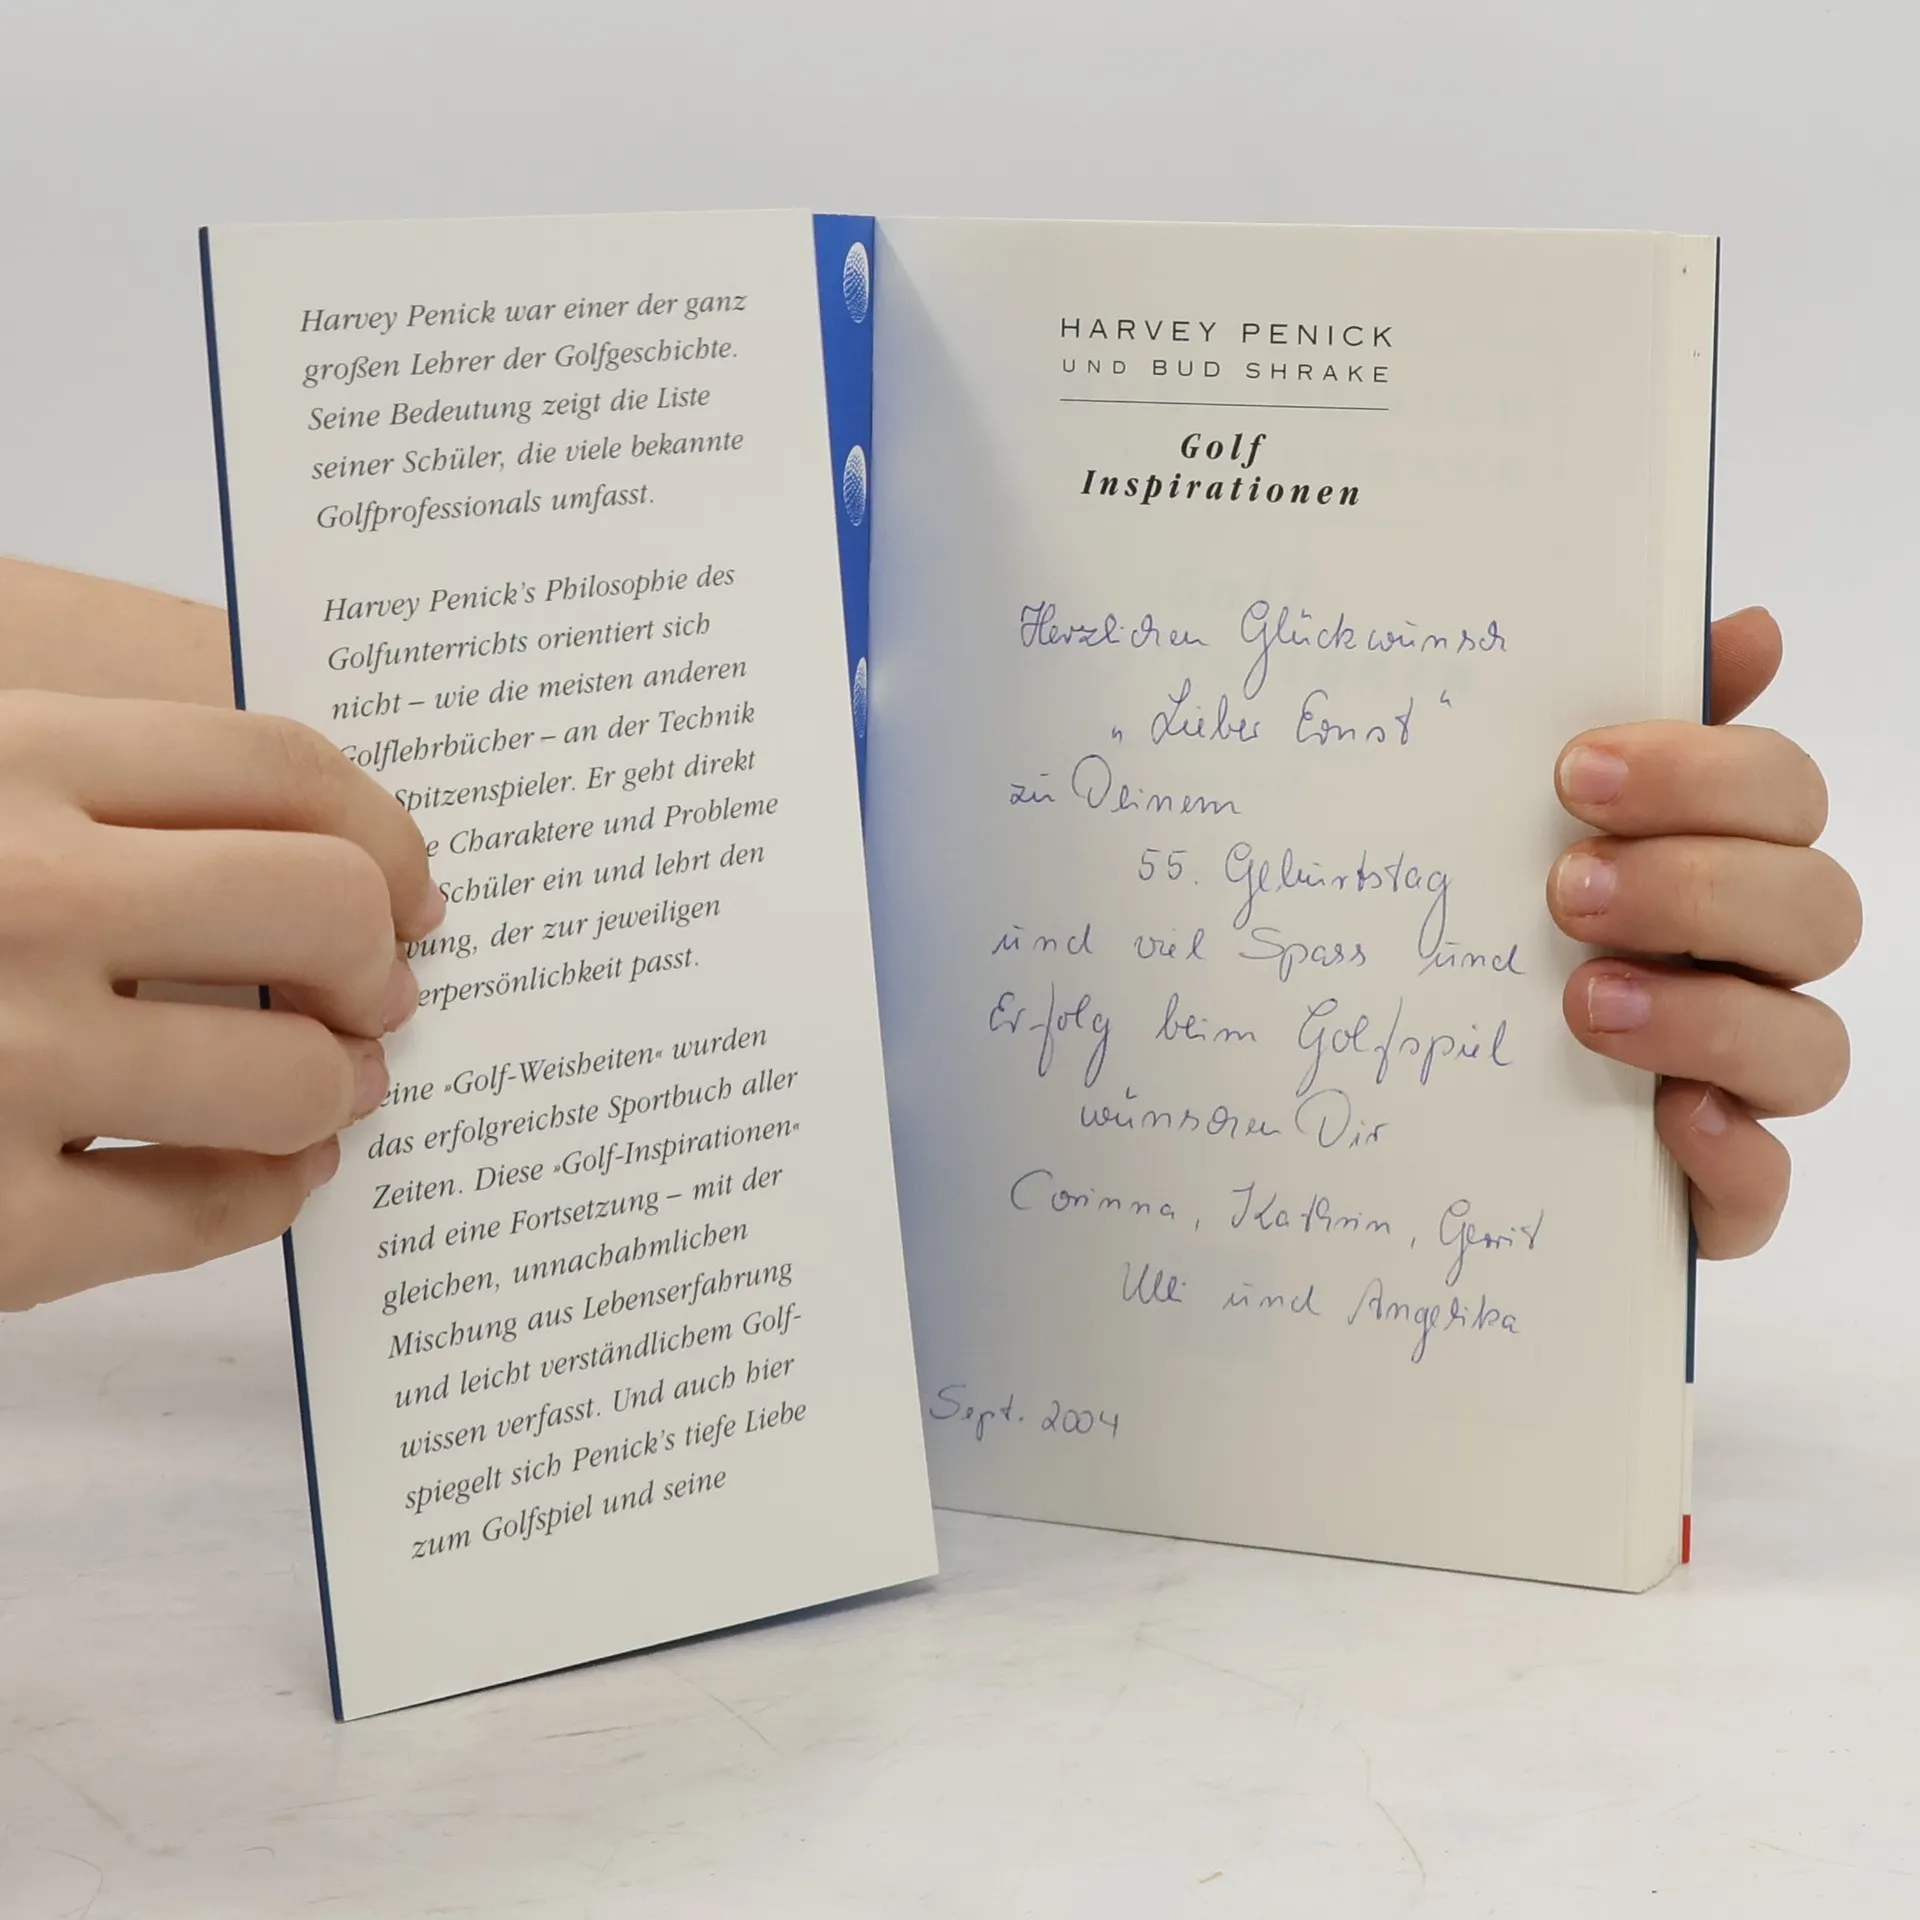 Harvey Penick war einer der ganz
großen Lehrer der Golfgeschichte.
Seine Bedeutung zeigt die Liste
seiner Schüler, die viele bekannte
Golfprofessionals umfasst.
Harvey Penick's Philosophie des
Golfunterrichts orientiert sich
nicht – wie die meisten anderen
Golflehrbücher – an der Technik
Spitzenspieler. Er geht direkt
e Charaktere und Probleme
Schüler ein und lehrt den
wung, der zur jeweiligen
erpersönlichkeit passt.
eine »Golf-Weisheiten« wurden
das erfolgreichste Sportbuch aller
Zeiten. Diese »Golf-Inspirationen«
sind eine Fortsetzung – mit der
gleichen, unnachahmlichen
Mischung aus Lebenserfahrung
und leicht verständlichem Golf-
wissen verfasst. Und auch hier
spiegelt sich Penick's tiefe Liebe
zum Golfspiel und seine
HARVEY PENICK
UND BUD SHRAKE
Golf
Inspirationen
Herzlichen Glückwunsch
„Lieber Ernst“
zu Deinem
55. Geburtstag
und viel Spass und
Erfolg beim Golfspiel
wünschen Dir
Corinna, Kathrin, Gerrit
Ulli und Angelika
Sept. 2004